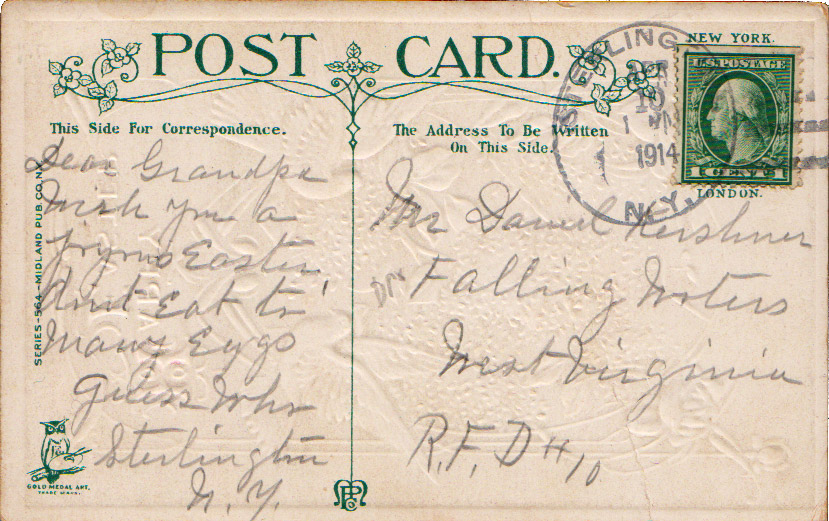 POST CARD.
NEW YORK.
U.S. POSTAGE
1 CENT 1
LONDON.
STERLINGTON
APR
10
1914
N.Y.
This Side For Correspondence.
The Address To Be Written
On This Side.
Dear Grandpa
Wish you a
Easter
dint Eat to
Many Eggs
Guess Who
Sterlington
N. Y.
Mr Daniel Kershner
Falling Waters
West Virginia
R.F.D # 10
SERIES-564-MIDLAND PUB. CO. N.Y.
GOLD MEDAL ART.
TRADE MARK.